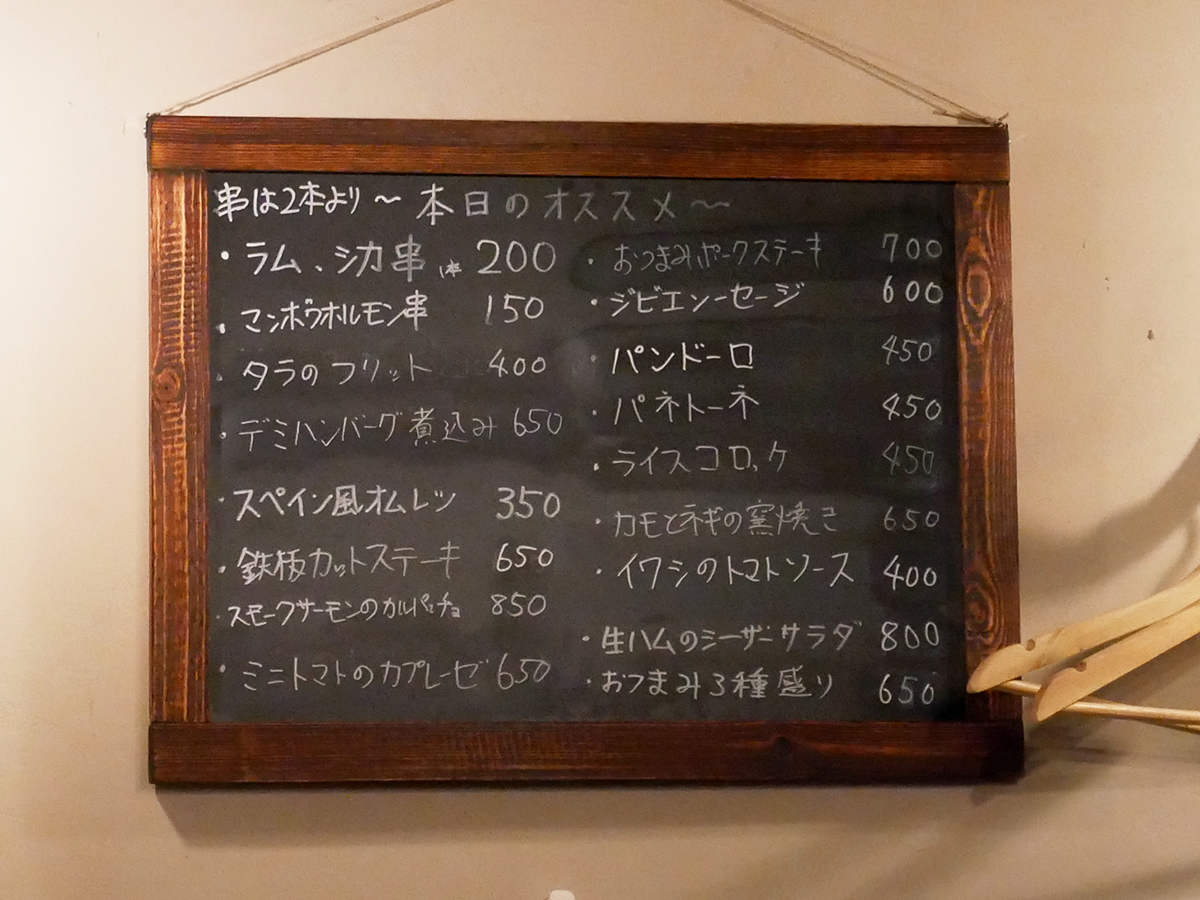 串は2本より～本日のオススメ～
・ラム、シカ串 1本 200
・マンボウホルモン串 150
・タラのフリット 400
・デミハンバーグ煮込み 650
・スペイン風オムレツ 350
・鉄板カットステーキ 650
・スモークサーモンのカルパッチョ 850
・ミニトマトのカプレーゼ 650
・おつまみポークステーキ 700
・ジビエソーセージ 600
・パンドーロ 450
・パネトーネ 450
・ライスコロッケ 450
・カモとネギの窯焼き 650
・イワシのトマトソース 400
・生ハムのシーザーサラダ 800
・おつまみ3種盛り 650